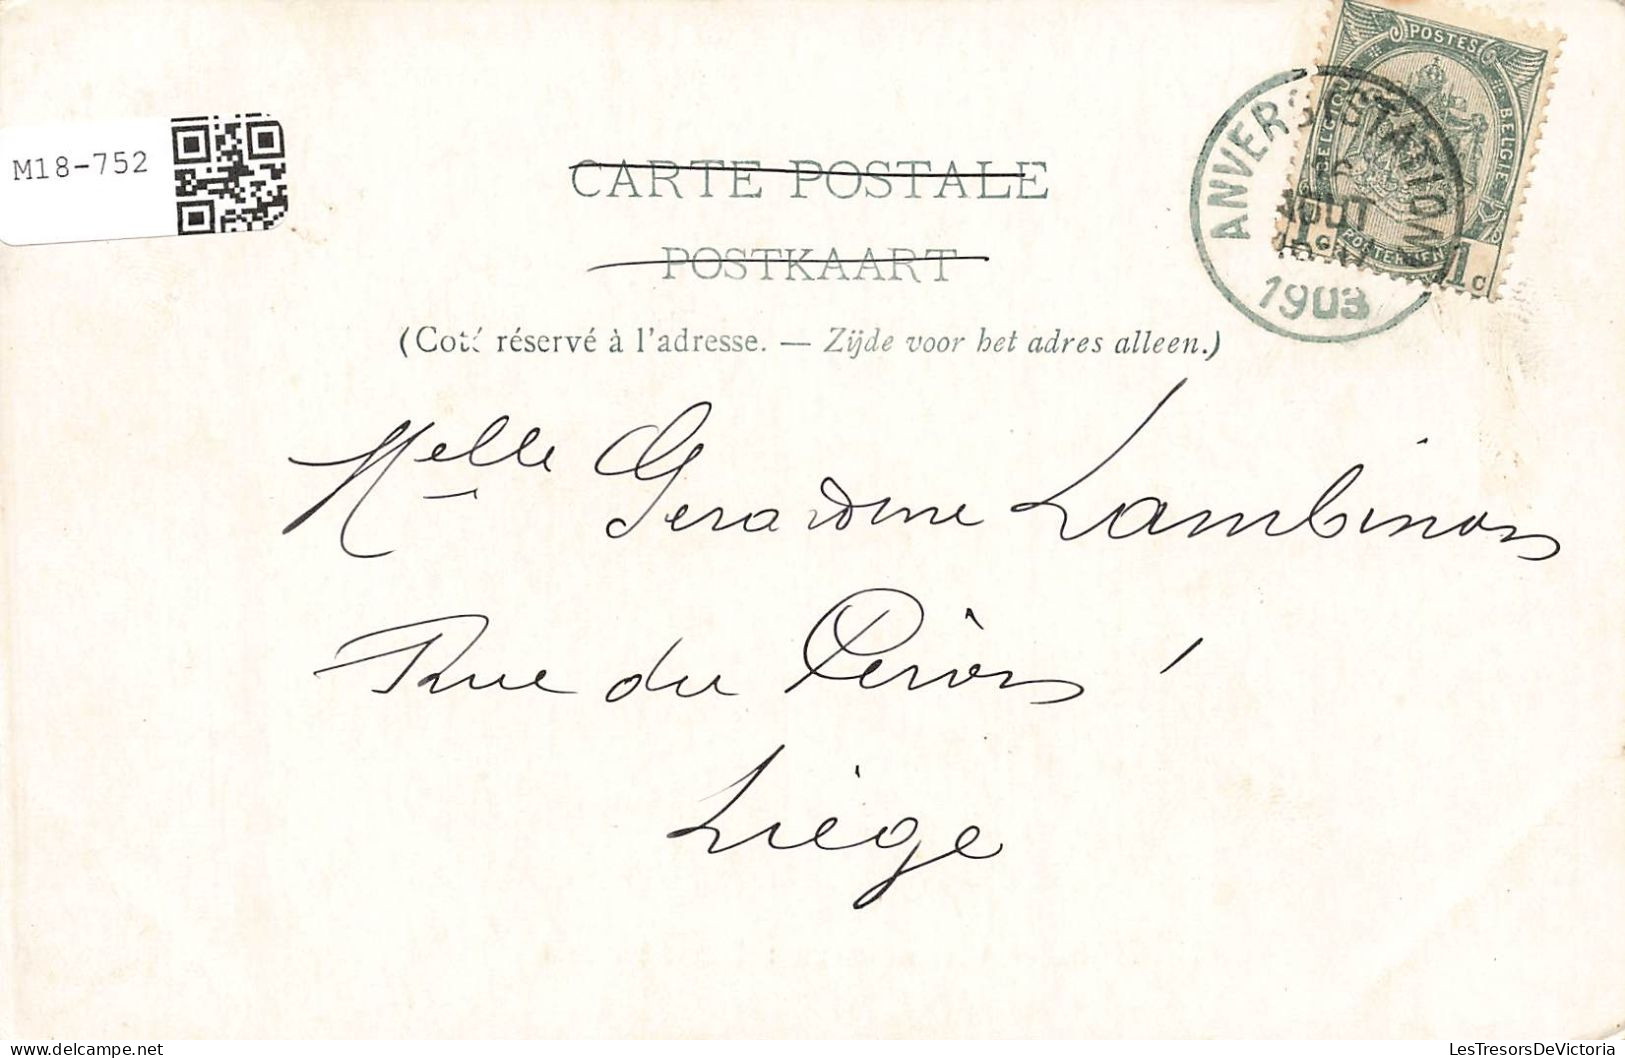 M18-752
CARTE POSTALE
POSTKAART
(Coté réservé à l'adresse. — Zijde voor het adres alleen.)
POSTES
BELGIE
BELGIQUE
POSTERIJEN
1c
ANVERS (STATION)
AOUT
1903
Melle Gerardine Lambinon
Rue du
Liège
LesTresorsDeVictoria